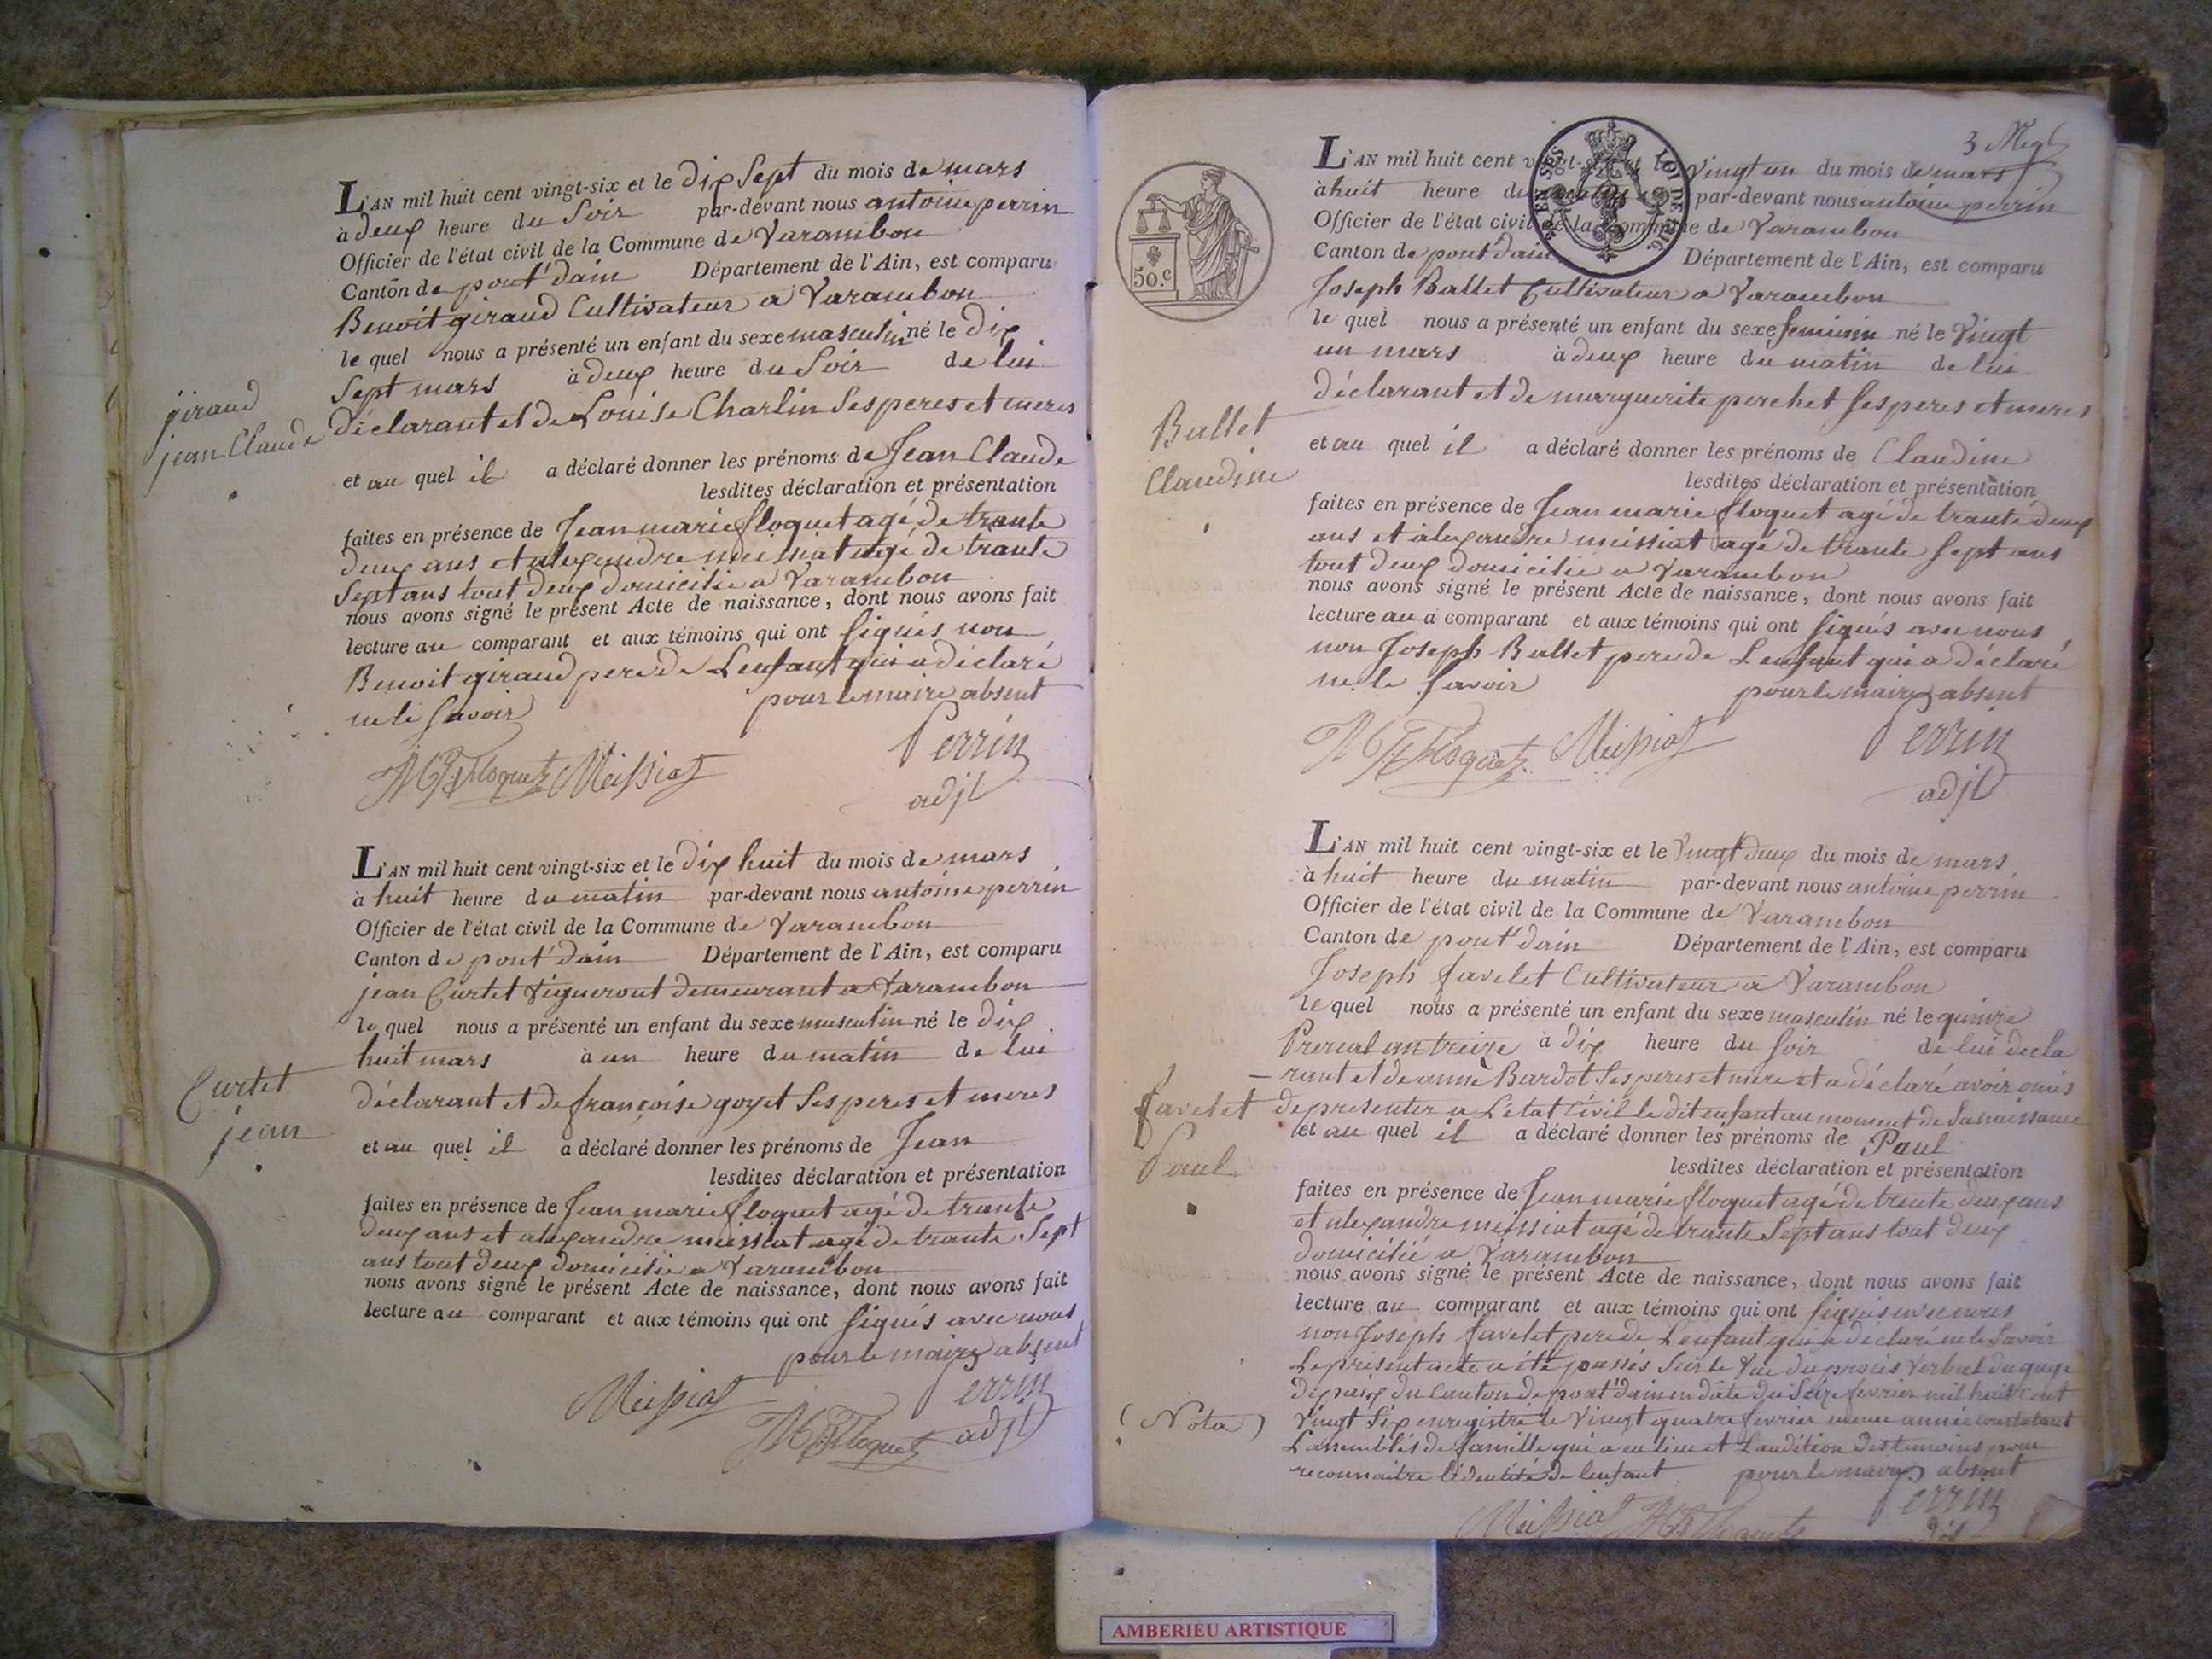 L'AN mil huit cent vingt-six et le dix Sept du mois de mars
à deux heure du Soir par-devant nous antoine perrin
Officier de l'état civil de la Commune de Varambon
Canton de pont d'ain Département de l'Ain, est comparu
Benoit giraud Cultivateur a Varambon
le quel nous a présenté un enfant du sexe masculin né le dix
Sept mars à deux heure du Soir de lui
giraud
jean Claude
déclarant et de Louise Charlin Ses peres et meres
et au quel il a déclaré donner les prénoms de Jean Claude
lesdites déclaration et présentation
faites en présence de Jean marie floquet agé de trante
deux ans et alexandre meissiat agé de trante
Sept ans tout deux domicilie a Varambon
nous avons signé le présent Acte de naissance, dont nous avons fait
lecture au comparant et aux témoins qui ont Signés non
Benoit giraud pere de Lenfant qui a déclaré
ne le Savoir pour le maire absent
Floquet Meissiat Perrin
adjt
L'AN mil huit cent vingt-six et le dix huit du mois de mars
à huit heure du matin par-devant nous antoine perrin
Officier de l'état civil de la Commune de Varambon
Canton de pont d'ain Département de l'Ain, est comparu
jean Curtet Vigneront demeurant a Varambon
le quel nous a présenté un enfant du sexe masculin né le dix
huit mars à un heure du matin de lui
Curtet
jean
déclarant et de françoise goyet Ses peres et meres
et au quel il a déclaré donner les prénoms de Jean
lesdites déclaration et présentation
faites en présence de Jean marie floquet agé de trante
deux ans et alexandre meissiat agé de trante Sept
ans tout deux domicilie a Varambon
nous avons signé le présent Acte de naissance, dont nous avons fait
lecture au comparant et aux témoins qui ont Signés avec nous
pour le maire absent
Meissiat Floquet Perrin
adjt
3
50.c
L'AN mil huit cent vingt-six et le Vingt un du mois de mars
à huit heure du matin par-devant nous antoine perrin
Officier de l'état civil de la Commune de Varambon
Canton de pont d'ain Département de l'Ain, est comparu
LOI DE 1816.
Joseph Ballet Cultivateur a Varambon
le quel nous a présenté un enfant du sexe feminin né le Vingt
un mars à deux heure du matin de lui
Ballet
Claudine
déclarant et de marguerite perchet Ses peres et meres
et au quel il a déclaré donner les prénoms de Claudine
lesdites déclaration et présentation
faites en présence de Jean marie floquet agé de trante deux
ans et alexandre meissiat agé de trante Sept ans
tout deux domicilie a Varambon
nous avons signé le présent Acte de naissance, dont nous avons fait
lecture au a comparant et aux témoins qui ont Signés avec nous
non Joseph Ballet pere de Lenfant qui a déclaré
ne le Savoir pour le maire absent
Floquet Meissiat Perrin
adjt
L'AN mil huit cent vingt-six et le Vingt deux du mois de mars
à huit heure du matin par-devant nous antoine perrin
Officier de l'état civil de la Commune de Varambon
Canton de pont d'ain Département de l'Ain, est comparu
Joseph favelet Cultivateur a Varambon
le quel nous a présenté un enfant du sexe masculin né le quinze
Prereal an treize à dix heure du Soir de lui decla
rant et de anne Bardot Ses peres et mere et a déclaré avoir omis
favelet
Paul
de presenter a L'etat Civil le dit enfant au moment de Sa naissance
et au quel il a déclaré donner les prénoms de Paul
lesdites déclaration et présentation
faites en présence de Jean marie floquet agé de trente deux ans
et alexandre meissiat agé de trante Sept ans tout deux
domicilié a Varambon
nous avons signé le présent Acte de naissance, dont nous avons fait
lecture au comparant et aux témoins qui ont Signés avec nous
non Joseph favelet pere de Lenfant qui a déclaré ne le Savoir
Le présent acte a été passés Sur le Vue du procès Verbal du guge
de paix du Canton de pont d'ain en date du Seize fevrier mil huit cent
(Nota) Vingt Six enregistré le Vingt quatre fevrier meme année constatant
L'assemblés de famille qui a eu lieu et Laudition des temoins pour
reconnaitre lidentité de lenfant pour le maire absent
Meissiat Floquet Perrin
AMBERIEU ARTISTIQUE